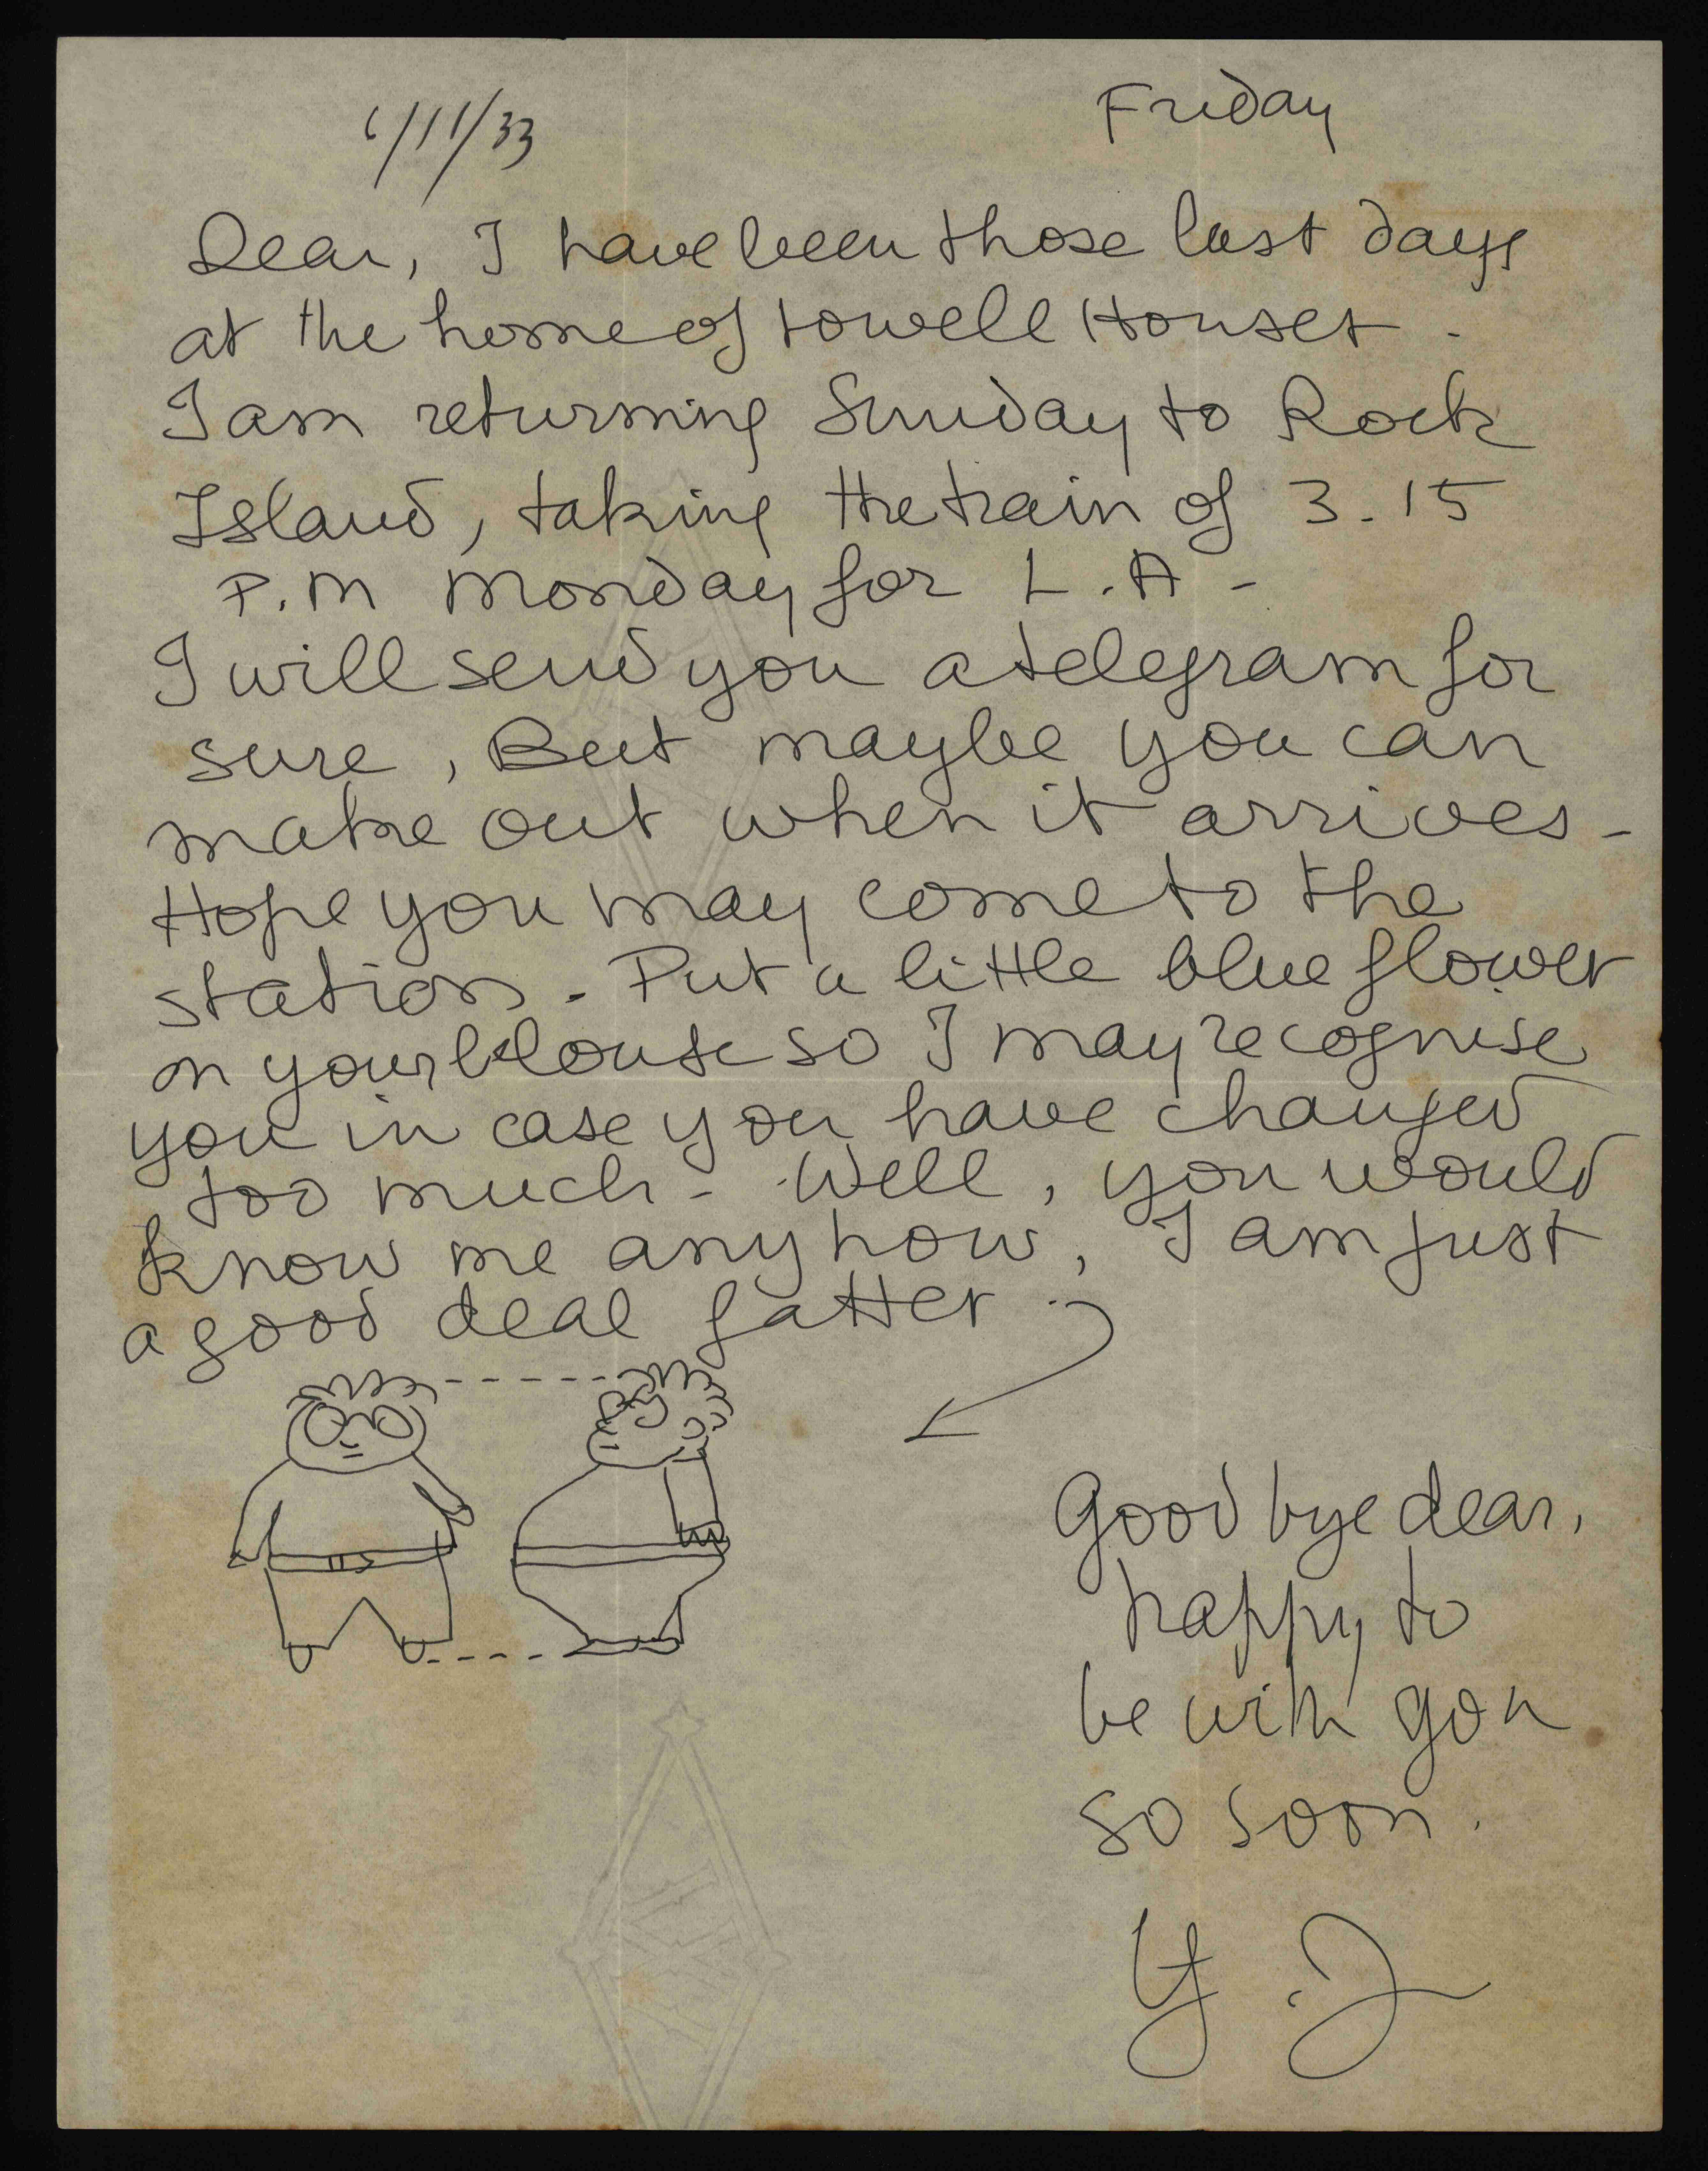 Friday
6/11/33
Dear, I have been those last days
at the home of Lowell Houser -
I am returning Sunday to Rock
Island, taking the train of 3.15
P.M Monday for L.A -
I will send you a telegram for
sure, But maybe you can
make out when it arrives -
Hope you may come to the
station - Put a little blue flower
on your blouse so I may recognise
you in case you have changed
too much - Well, you would
know me anyhow, I am just
a good deal fatter
Good bye dear,
happy to
be with you
so soon.
Y. J